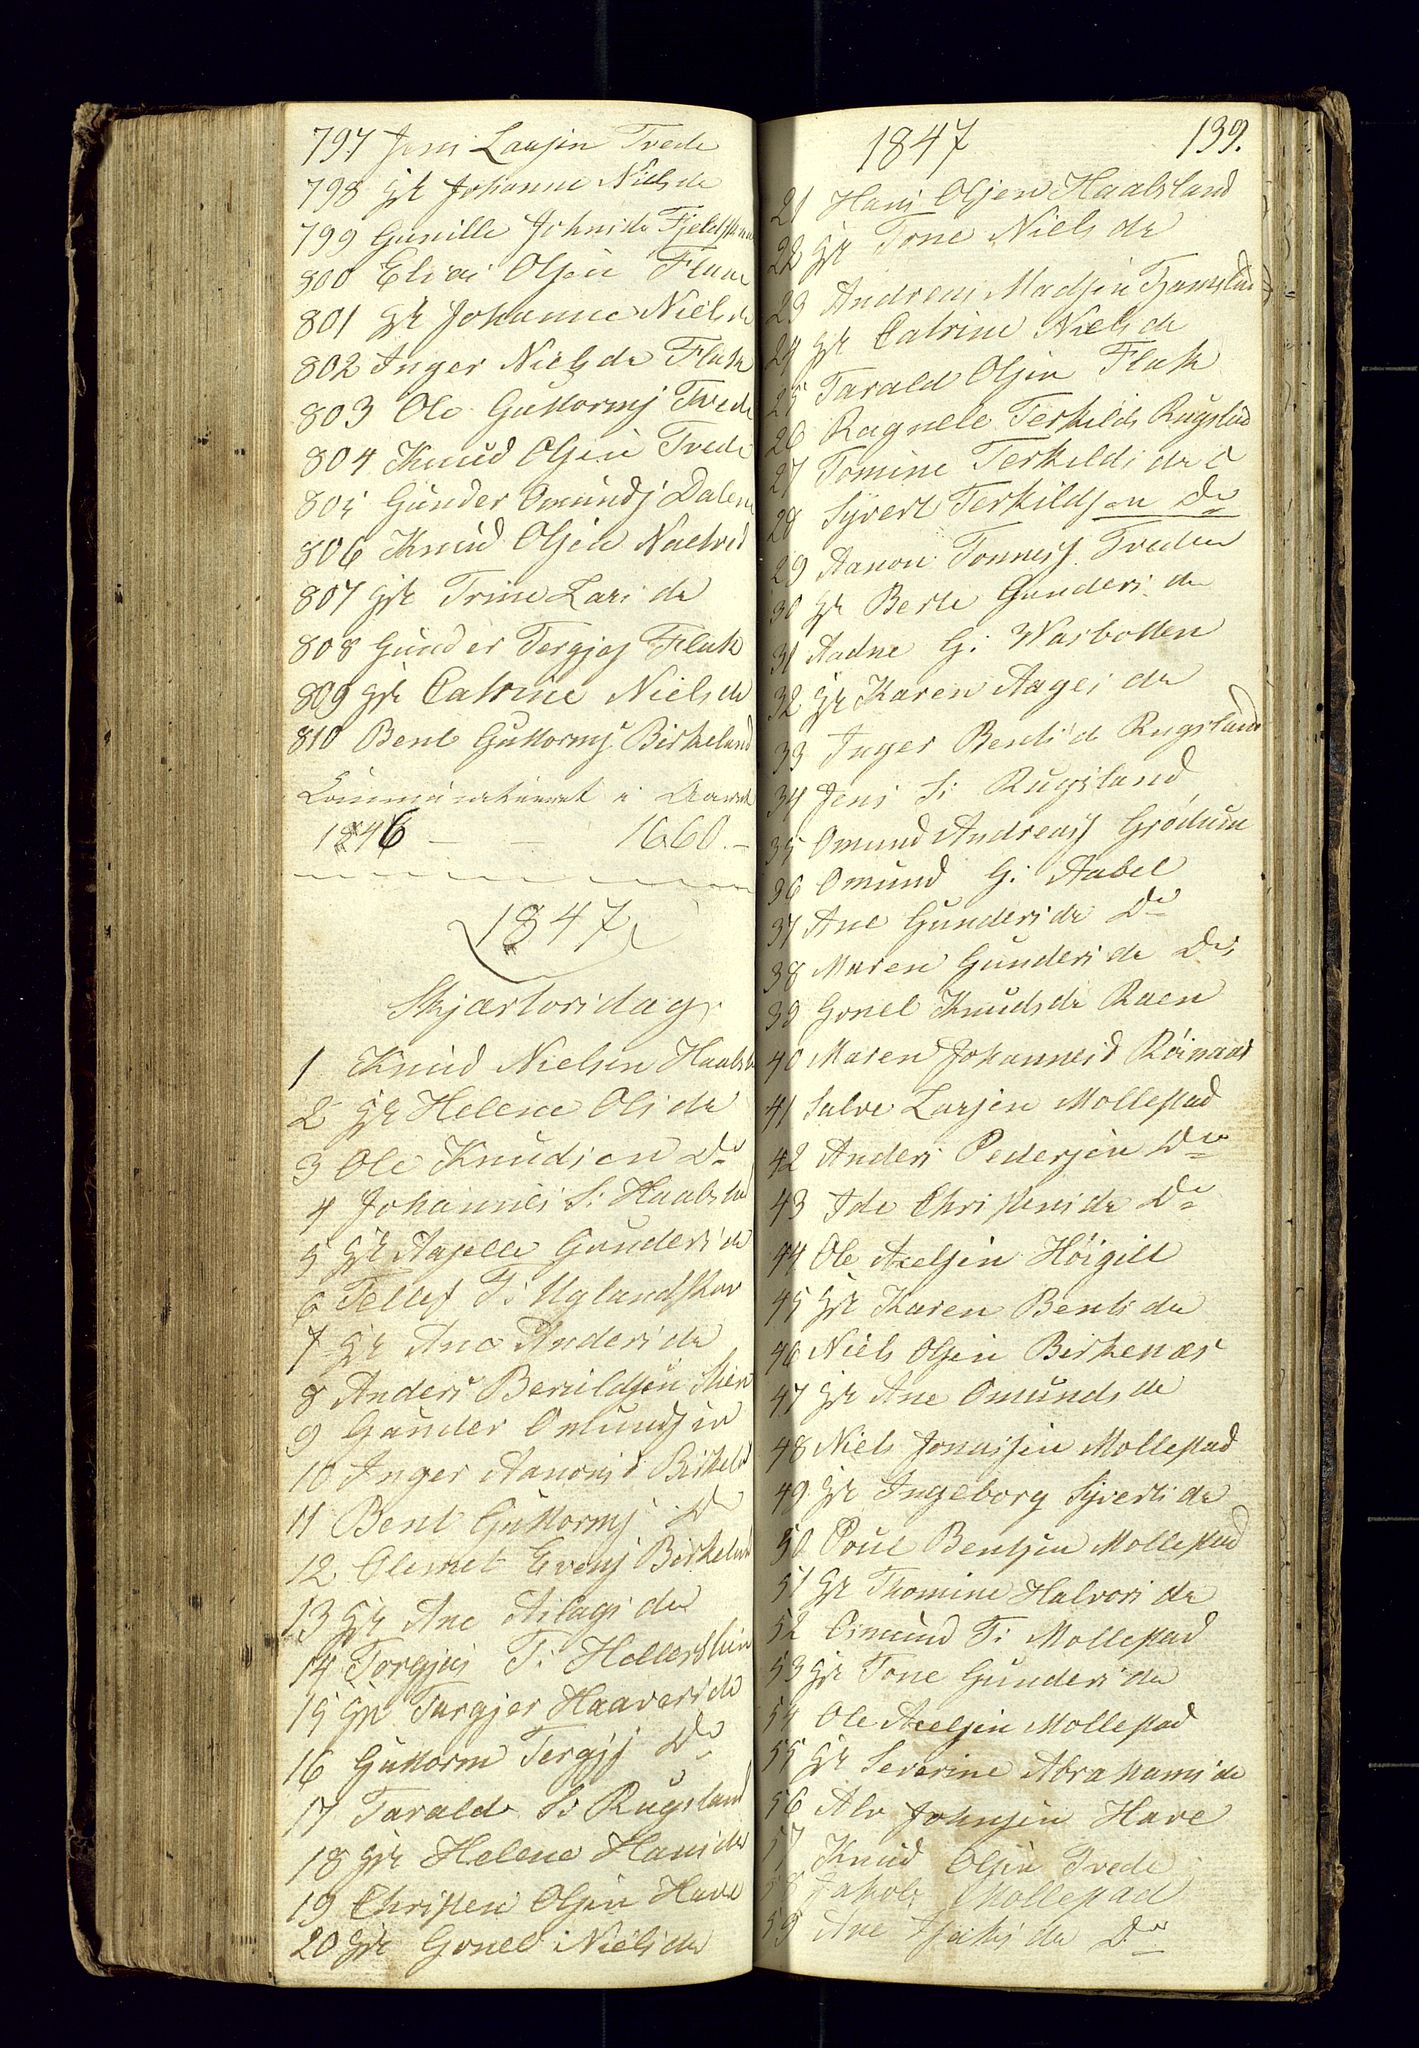 797 Jens Larsen Tvede
798 Gk Johanne Nielsda
799 Gunille Johnsda
800 Elias Olsen Flaa
801 Gk Johanne Nielsda
802 Inger Nielsda Flak
803 Ole Guttormsf Tvede
804 Knud Olsen Tvede
805 Gunder Omundsf Dalen
806 Knud Olsen
807 Gk Trine Larsda
808 Gunder Tergjesf Flak
809 Gk Catrine Nielsda
810 Bent Guttormsf Birkeland
i Aaret
1846 — — 1660.—
1847
Skjærtorsdag.
1 Knud Nielsen Haabst
2 Gk Helene Olsda
3 Ole Knudsen Do
4 Johannes S: Haabsland
5 Gk Aaselle Gundersda
6 Tellef T: Uglandskar
7 Gk Ane Andersda
8 Anders Beruldsen
9 Gunder Omundsen
10 Inger Aanonsd Birkeld
11 Bent Guttormsf Do
12 Clemet Evensf Birkeland
13 Gk Ane Aslagsda
14 Torgjus T:
15 Gk Targjer Haaversda
16 Guttorm Tergjsf Do
17 Tarald S: Rugsland
18 Gk Helene Hansda
19 Christen Olsen Have
20 Gk Gonel Nielsda
1847 139.
21 Hans Olsen Haabsland
22 Gk Tone Nielsda
23 Andreas Madsen
24 Gk Catrine Nielsda
25 Tarald Olsen Flak
26 Ragnele Terkilds Rugslad
27 Tomine Terkeldsda
28 Syvert Terkildsen Do
29 Aanon Tonnesf Tveden
30 Gk Berte Gundersda
31 Aadne G: Warbotten
32 Gk Karen Aagesda
33 Inger Bentsd Rugsland
34 Jens S: Rugsland
35 Omund Andreasf Grødum
36 Omund G: Aabel
37 Ane Gundersda Do
38 Maren Gundersda Do
39 Gonel Knudsda Raen
40 Maren Johannesd Röinaas
41 Salve Larsen Mollestad
42 Anders Pedersen Do
43 Ide Christensda Do
44 Ole Axelsen Höigilt
45 Gk Karen Bentsda
46 Niels Olsen Birkenæs
47 Gk Ane Omundsda
48 Niels Jonassen Mollestad
49 Gk Ingeborg Syvertsda
50 Poul Bentsen Mollestad
51 Gk Thomine Halvorsda
52 Osmund T: Mollestad
53 Gk Tone Gundersda
54 Ole Axelsen Mollestad
55 Gk Severine Abrahamsda
56 Alv Johnsen Have
57 Knud Olsen Tvede
58 Jakob Mollestad
59 Ane da Do